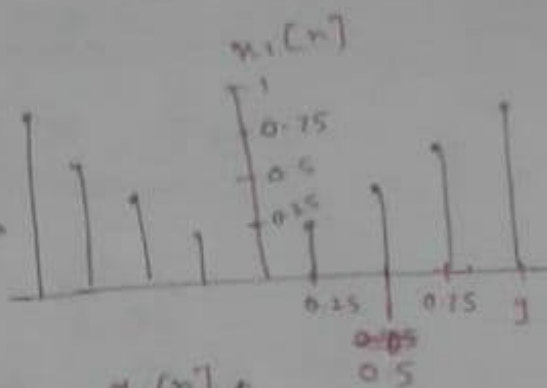 x₁[n]
1
0.75
0.5
0.25
0.25 0.75 1
0.5
x [n]